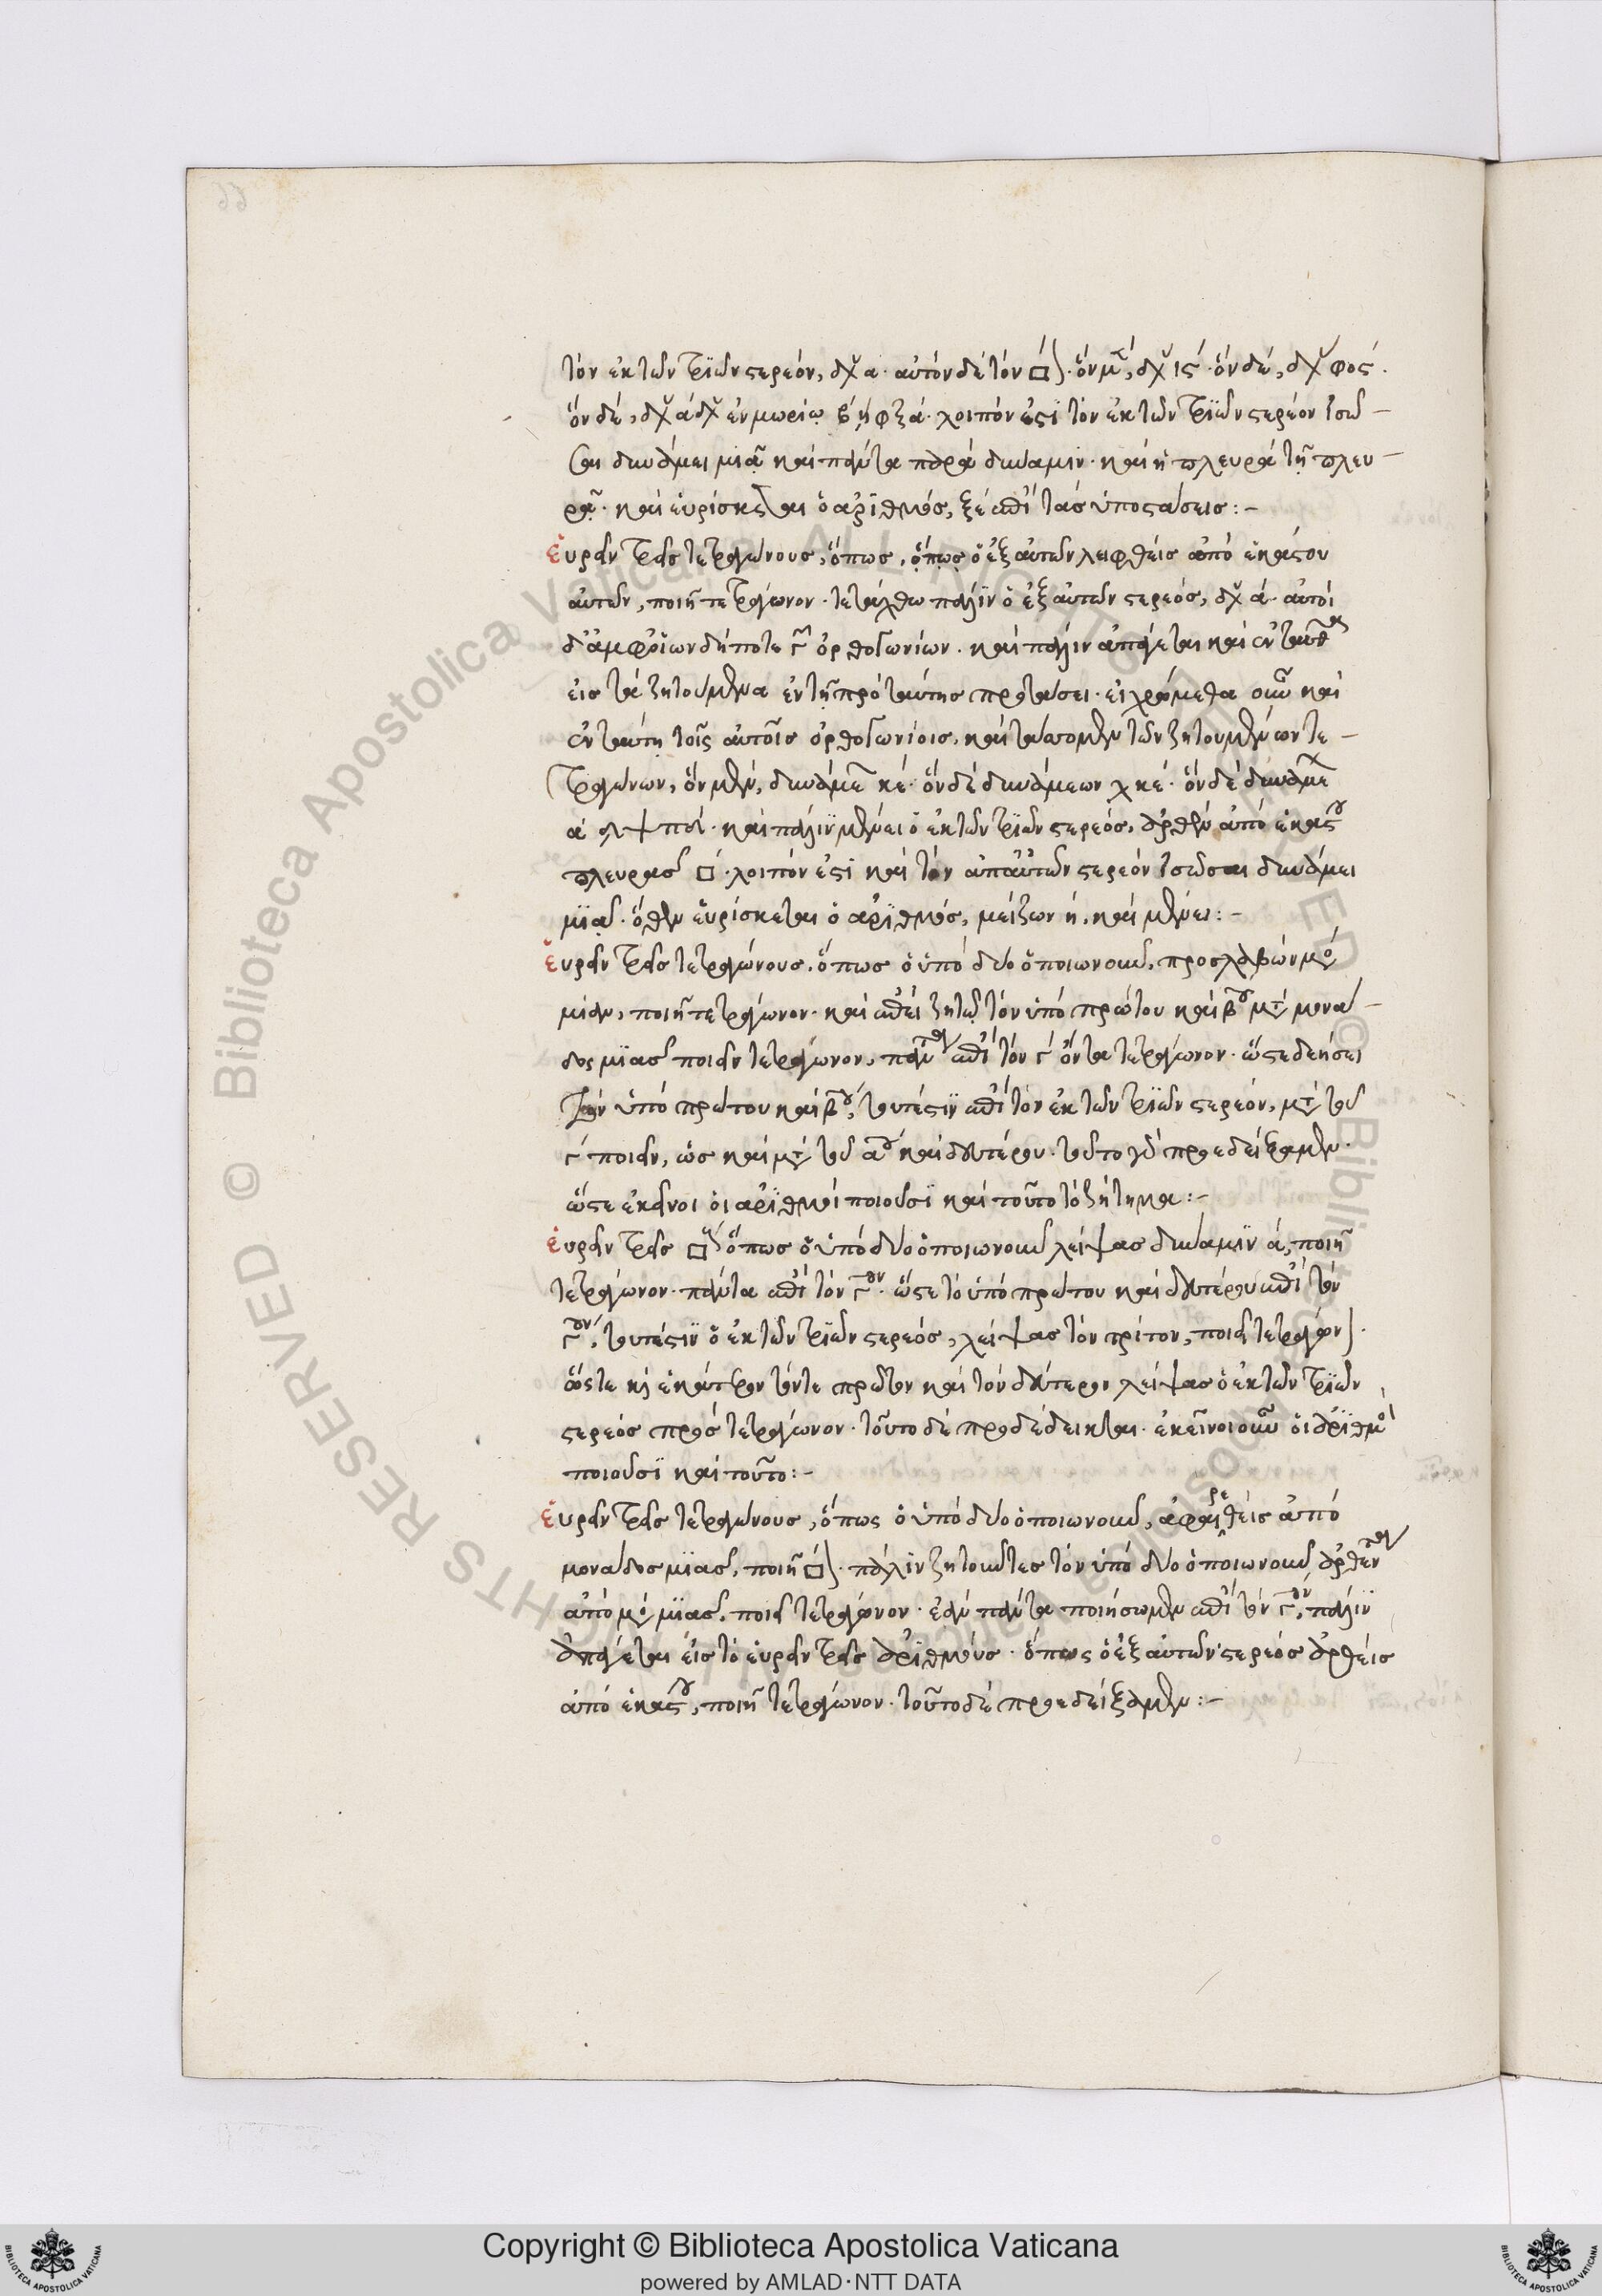 τὸν ἐκ τῶν τριῶν στερεόν, δΥ α. αὐτὸν δὲ τὸν □. ὃν μὲν, δΥ ις. ὃν δὲ, δΥ φος.
ὃν δὲ, δΥ α δΥ ἐν μορίῳ β ηφξα. λοιπόν ἐστι τὸν ἐκ τῶν τριῶν στερεὸν ἰσῶ-
σαι δυνάμει μιᾷ καὶ πάντα παρὰ δύναμιν. καὶ ἡ πλευρὰ τῇ πλευ-
ρᾷ. καὶ εὑρίσκεται ὁ ἀριθμός, ἐπὶ τὰς ὑποστάσεις:-
εὑρεῖν τρεῖς τετραγώνους, ὅπως, ὅπως ὁ ἐξ αὐτῶν λειφθεὶς ἀπὸ ἑκάστου
αὐτῶν, ποιῇ τετράγωνον. τετάχθω πάλιν ὁ ἐξ αὐτῶν στερεός, δΥ α. αὐτοὶ
δήποτε γ ὀρθογωνίων. καὶ πάλιν ἀπάγεται καὶ ἐνταῦθα
εἰς τὰ ζητούμενα ἐν τῇ πρὸ ταύτης προτάσει. εἰ χρώμεθα οὖν καὶ
ἐν ταύτῃ τοῖς αὐτοῖς ὀρθογωνίοις, καὶ τάσσομεν τῶν ζητουμένων τε-
τραγώνων, ὃν μὲν, δυνάμεων κε. ὃν δὲ δυνάμεων χκε. ὃν δὲ δυνάμεων
καὶ πάλιν μένει ὁ ἐκ τῶν τριῶν στερεός, ἀρθεὶς ἀπὸ ἑκάστου
πλευρας □. λοιπόν ἐστι καὶ τὸν ἀπ' αὐτῶν στερεὸν ἰσῶσαι δυνάμει
μιᾷ. ὅθεν εὑρίσκεται ὁ ἀριθμός, μείζων η, καὶ μένει:-
εὑρεῖν τρεῖς τετραγώνους, ὅπως ὁ ὑπὸ δύο ὁποιωνοῦν, προσλαβὼν μο
μίαν, ποιῇ τετράγωνον. καὶ ἐπεὶ ζητῶ τὸν ὑπὸ πρώτου καὶ βου μετὰ μονά-
δος μιᾶς ποιεῖν τετράγωνον, πάντα ἐπὶ τὸν γ ὄντα τετράγωνον. ὥστε δεήσει
τὸν ὑπὸ πρώτου καὶ βου, τουτέστιν ἐπὶ τὸν ἐκ τῶν τριῶν στερεόν, μετὰ τοῦ
γ ποιεῖν, ὡς καὶ μετὰ τοῦ αου καὶ δευτέρου. τοῦτο γὰρ προεδείξαμεν.
ὥστε ἐκεῖνοι οἱ ἀριθμοὶ ποιοῦσι καὶ τοῦτο τὸ ζήτημα:-
εὑρεῖν τρεῖς □ους ὅπως ὁ ὑπὸ δύο ὁποιωνοῦν λείψας δύναμιν α, ποιῇ
τετράγωνον. πάντα ἐπὶ τὸν γον. ὥστε τὸ ὑπὸ πρώτου καὶ δευτέρου ἐπὶ τὸν
γον, τουτέστιν ὁ ἐκ τῶν τριῶν στερεός, λείψας τὸν τρίτον, ποιεῖ τετράγων.
ὥστε καὶ ἑκάτερον τόν τε πρῶτον καὶ τὸν δεύτερον λείψας ὁ ἐκ τῶν τριῶν
στερεὸς πρὸς τετράγωνον. τοῦτο δὲ προδέδεικται. ἐκεῖνοι οὖν οἱ ἀριθμοὶ
ποιοῦσι καὶ τοῦτο:-
εὑρεῖν τρεῖς τετραγώνους, ὅπως ὁ ὑπὸ δύο ὁποιωνοῦν, ἀφαιρεθεὶς ἀπὸ
μονάδος μιᾶς, ποιῇ □. πάλιν ζητοῦντες τὸν ὑπὸ δύο ὁποιωνοῦν ἀρθέντα
ἀπὸ μο μιᾶς, ποιεῖ τετράγωνον. ἐὰν πάντα ποιήσωμεν ἐπὶ τὸν γον, πάλιν
ἀπάγεται εἰς τὸ εὑρεῖν τρεῖς ἀριθμοὺς. ὅπως ὁ ἐξ αὐτῶν στερεὸς ἀρθεὶς
ἀπὸ ἑκάστου, ποιῇ τετράγωνον. τοῦτο δὲ προεδείξαμεν:-
Copyright © Biblioteca Apostolica Vaticana
powered by AMLAD·NTT DATA